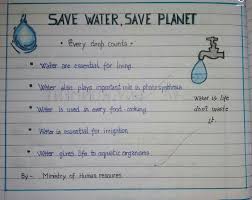 SAVE WATER, SAVE PLANET
• Every drop counts •
• Water are essential for living.
• Water also plays important role in photosynthesis
• Water is used in every food-cooking.
• Water is essential for irrigation
• Water gives life to aquatic organisms.
Water is life
don't waste
it
By - Ministry of Human resources.